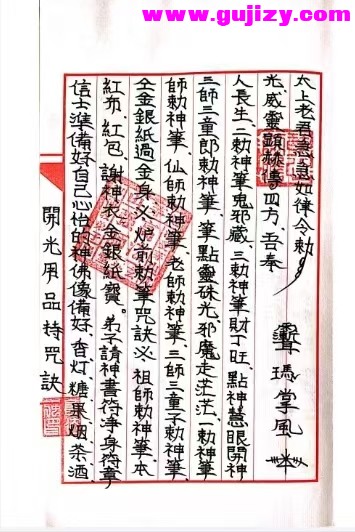 www.gujizy.com
開光用品特咒訣
信士準備好自己心怡的神佛像備好、香灯、糖果烟茶酒、
紅布、紅包、謝神衣金銀紙寳。弟子請神書符淨身符章
仝金銀紙過金身必、炉前勅筆咒訣必 祖師勅神筆、本
師勅神筆、仙師勅神筆、老師勅神筆、三師三童子勅神筆、
三師三童郎勅神筆、筆點靈硃光、邪魔走茫茫、一勅神筆
人長生、二勅神筆鬼邪藏、三勅神筆財丁旺、點神慧眼開神
光、威靈顯赫傳四方、吾奉
太上老君急急如律令勅
瑪掌風